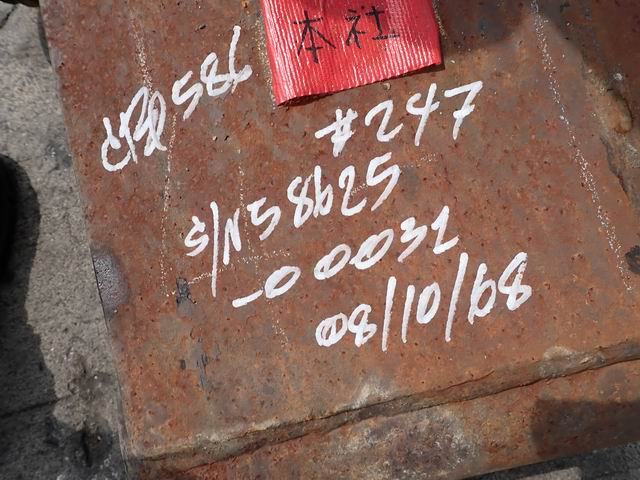 本社
586
#247
S/N 58625
-00031
08/10/68